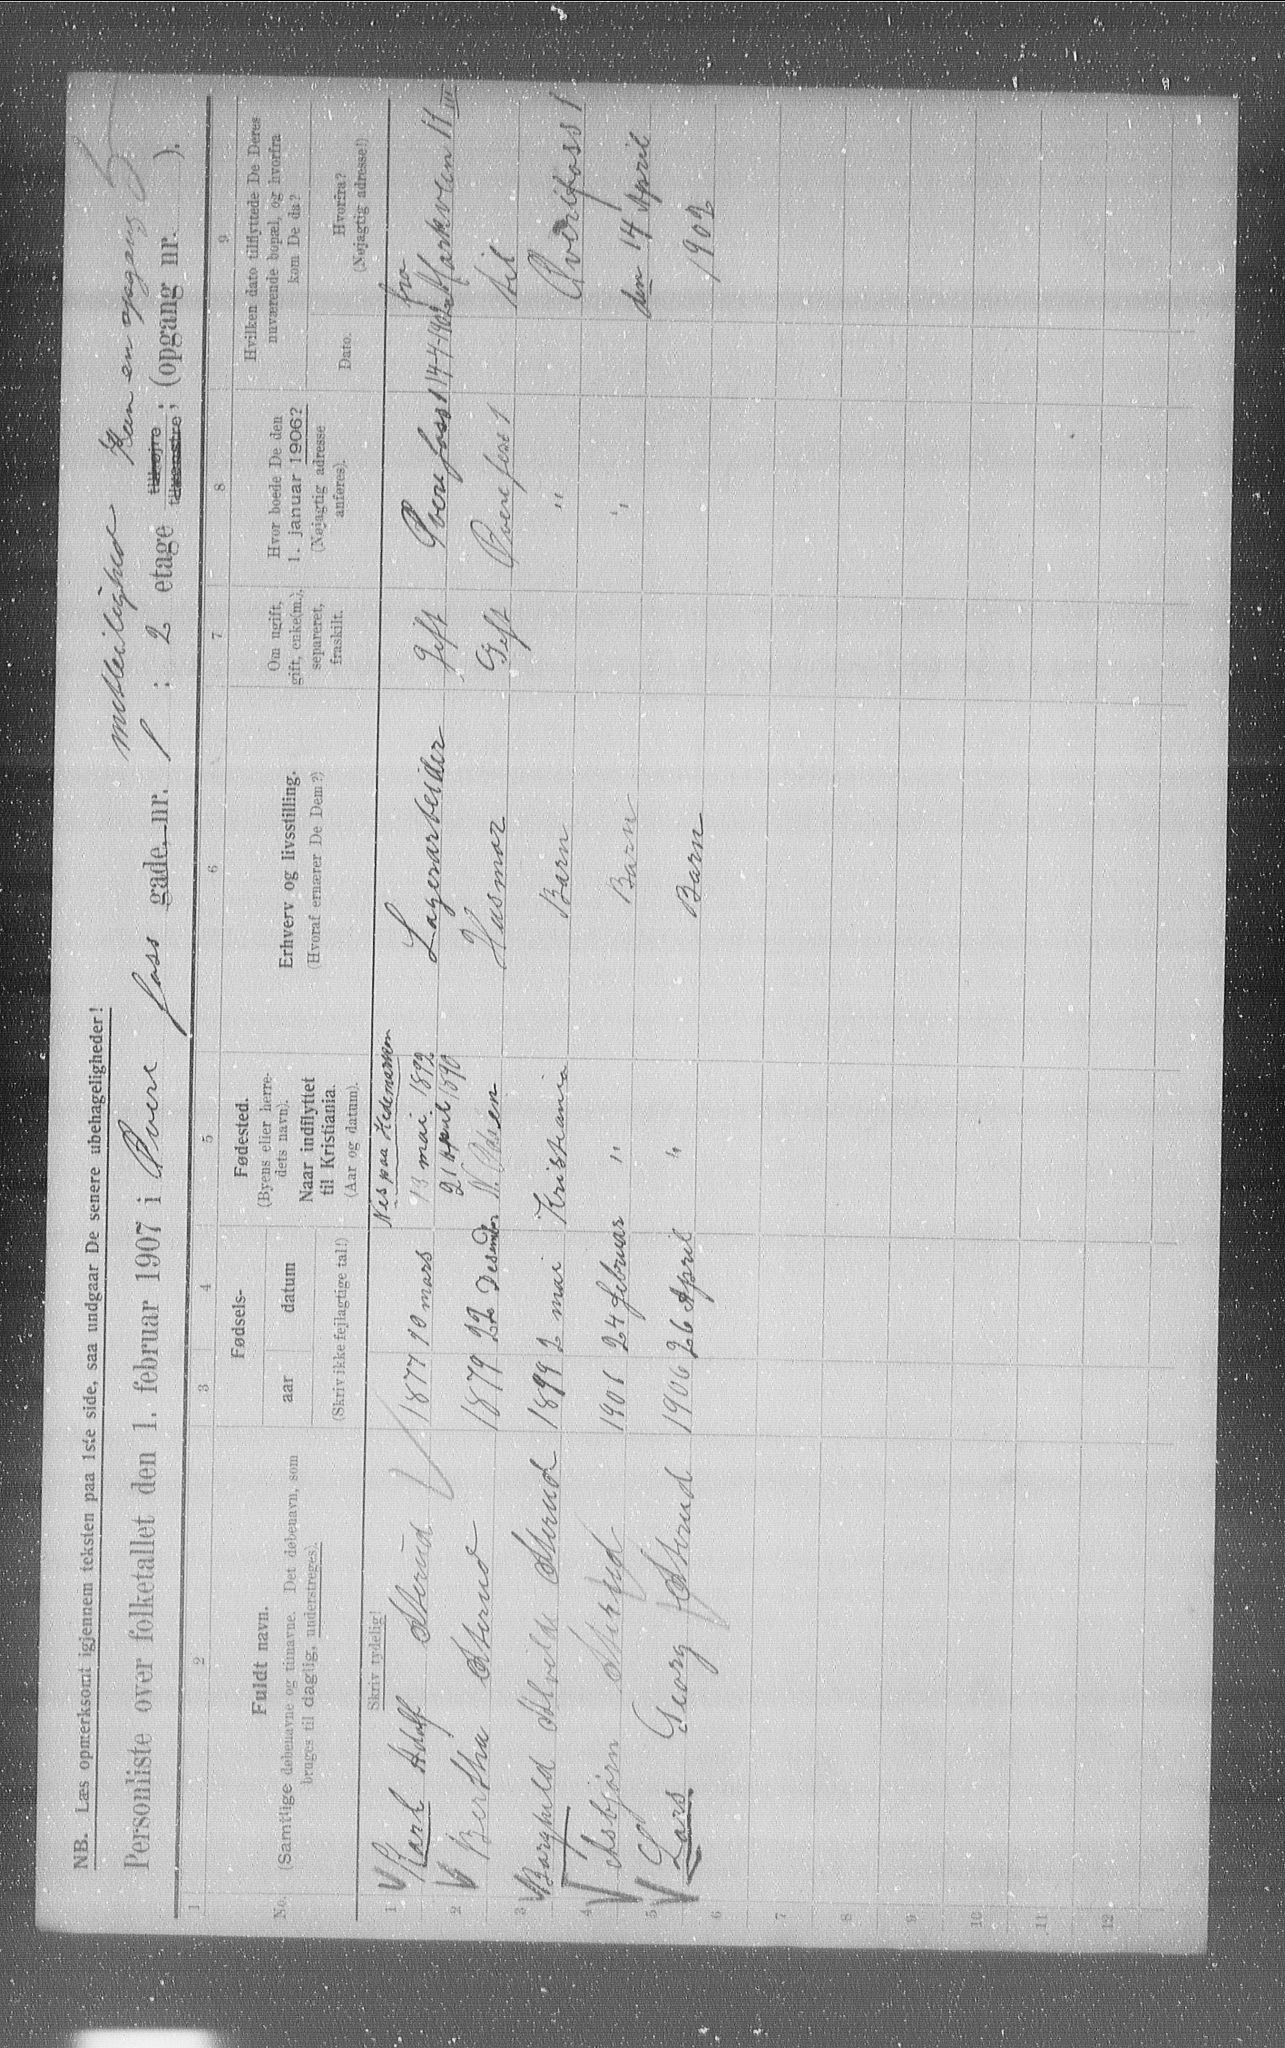 NB. Læs opmerksomt igjennem teksten paa 1ste side, saa undgaar De senere ubehageligheder!
midtleilighed Kun en opgang
Personliste over folketallet den 1. februar 1907 i Øvre foss gade, nr. 1 : 2 etage tilhøjre tilvenstre; (opgang nr. ).
1 2 3 4 5 6 7 8 9
No.
Fuldt navn.
(Samtlige døbenavne og tilnavne. Det døbenavn, som
bruges til daglig, understreges).
Fødsels-
aar datum
(Skriv ikke fejlagtige tal!)
Fødested.
(Byens eller herre-
dets navn).
Naar indflyttet
til Kristiania.
(Aar og datum).
Erhverv og livsstilling.
(Hvoraf ernærer De Dem?)
Om ugift,
gift, enke(m.),
separeret,
fraskilt.
Hvor boede De den
1. januar 1906?
(Nøjagtig adresse
anføres).
Hvilken dato tilflyttede De Deres
nuværende bopæl, og hvorfra
kom De da?
Dato.
Hvorfra?
(Nøjagtig adresse!)
Skriv tydelig!
Nes paa Hedemarken
1 Karl Adolf Sterud 1877 10 mars 13 mai 1899 Lagerarbeider Gift Øvre foss 1 14-4-1902 fra Markveien 11 III
21 april 1890
2 Bertha Sterud 1879 22 Desember Husmor Gift Øvre foss 1 til
3 Borghild Alvilde Sterud 1899 2 mai Kristiania Barn " Øvrefoss 1
4 Asbjørn Sterud 1901 24 februar " Barn " den 14 April
5 Lars Georg Sterud 1906 26 April " Barn 1902
6
7
8
9
10
11
12